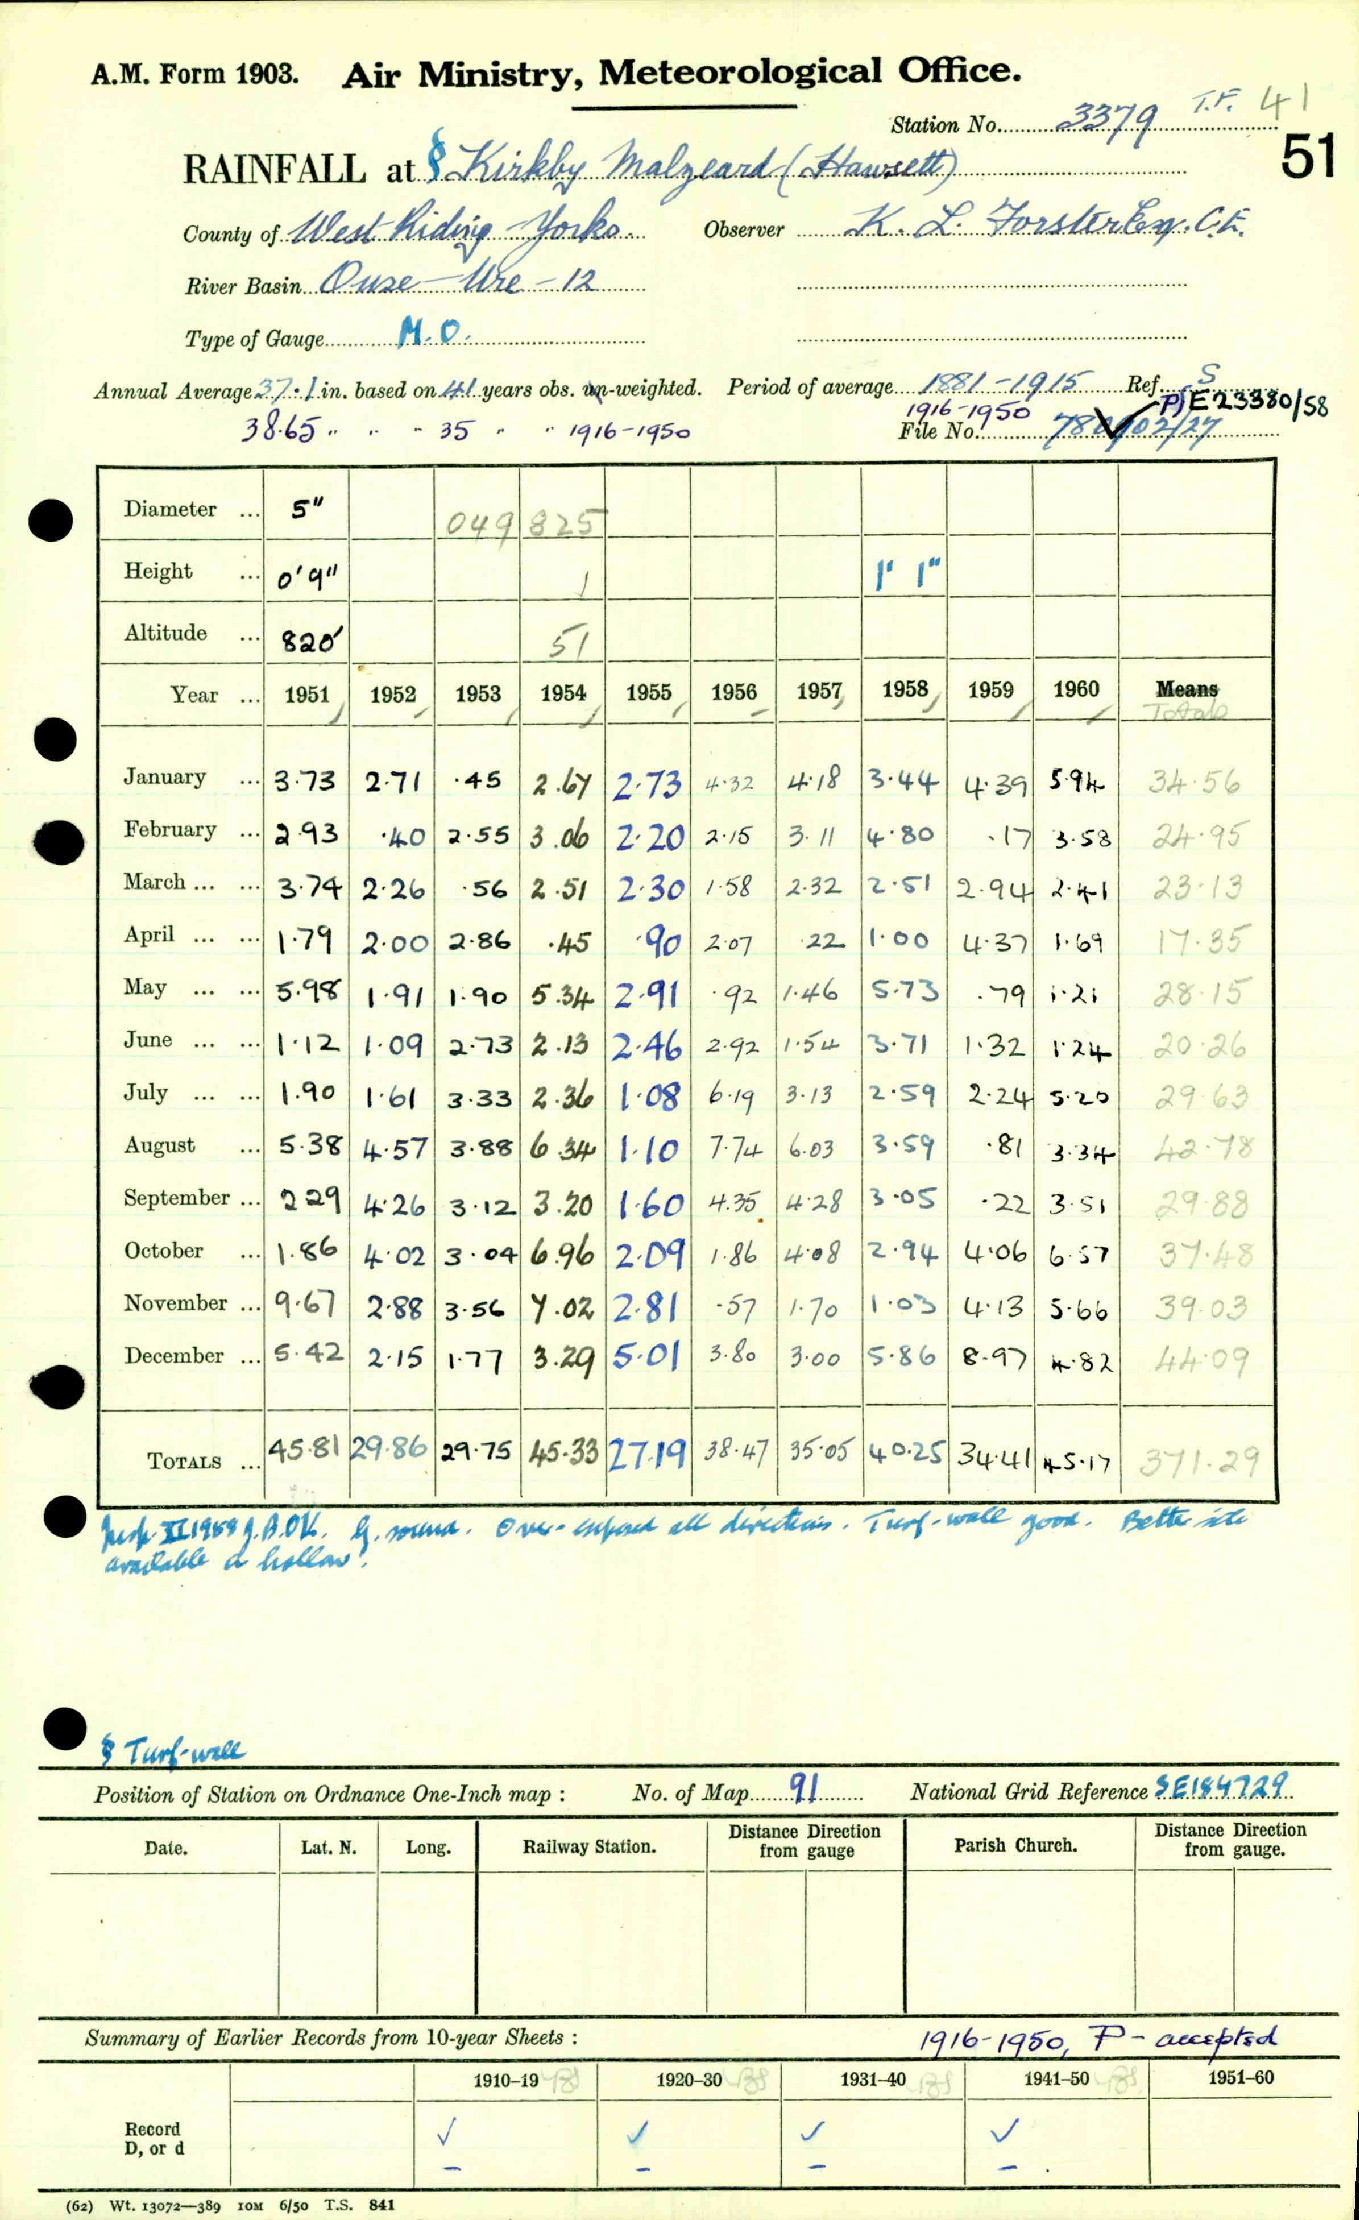 A.M. Form 1903. Air Ministry, Meteorological Office.
Station No. 3379 T.F. 41
51
RAINFALL at § Kirkby Malzeard (Hawsett)
County of West Riding Yorks. Observer K. L. Forster Esq. C.E.
River Basin Ouse - Ure - 12
Type of Gauge M.O.
Annual Average 37.1 in. based on 41 years obs. un-weighted. Period of average 1881-1915 Ref. S
1916-1950 E23380/58
38.65 " " - 35 " " 1916-1950 File No.
Diameter ... 5" 049 825
Height ... 0'9" 1 1' 1"
Altitude ... 820' 51
Year ... 1951 1952 1953 1954 1955 1956 1957 1958 1959 1960 Means
Totals
January ... 3.73 2.71 .45 2.67 2.73 4.32 4.18 3.44 4.39 5.94 34.56
February ... 2.93 .40 2.55 3.06 2.20 2.15 3.11 4.80 .17 3.58 24.95
March ... ... 3.74 2.26 .56 2.51 2.30 1.58 2.32 2.51 2.94 2.41 23.13
April ... ... 1.79 2.00 2.86 .45 .90 2.07 .22 1.00 4.37 1.69 17.35
May ... ... 5.98 1.91 1.90 5.34 2.91 .92 1.46 5.73 .79 1.21 28.15
June ... ... 1.12 1.09 2.73 2.13 2.46 2.92 1.54 3.71 1.32 1.24 20.26
July ... ... 1.90 1.61 3.33 2.36 1.08 6.19 3.13 2.59 2.24 5.20 29.63
August ... 5.38 4.57 3.88 6.34 1.10 7.74 6.03 3.59 .81 3.34 42.78
September ... 2 29 4.26 3.12 3.20 1.60 4.35 4.28 3.05 .22 3.51 29.88
October ... 1.86 4.02 3.04 6.96 2.09 1.86 4.08 2.94 4.06 6.57 37.48
November ... 9.67 2.88 3.56 7.02 2.81 .57 1.70 1.03 4.13 5.66 39.03
December ... 5.42 2.15 1.77 3.29 5.01 3.80 3.00 5.86 8.97 4.82 44.09
TOTALS ... 45.81 29.86 29.75 45.33 27.19 38.47 35.05 40.25 34.41 45.17 371.29
Insp. G. sound. Over-exposed all directions. Turf-wall good. Better site
available in hollow.
§ Turf-wall
Position of Station on Ordnance One-Inch map : No. of Map 91 National Grid Reference SE184729
Date. Lat. N. Long. Railway Station. Distance Direction from gauge Parish Church. Distance Direction from gauge.
Summary of Earlier Records from 10-year Sheets : 1916-1950, P - accepted
1910-19 1920-30 1931-40 1941-50 1951-60
Record
D, or d
(62) Wt. 13072—389 10M 6/50 T.S. 841